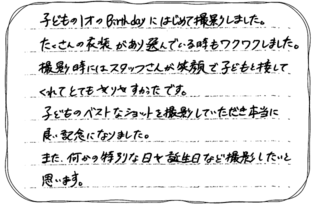 子どもの1才のBirthdayにはじめて撮影しました。
たくさんの衣装があり選んでいる時もワクワクしました。
撮影時にはスタッフさんが笑顔で子どもと接して
くれてとてもやりやすかったです。
子どものベストなショットを撮影していただき本当に
良い記念になりました。
また、何かの特別な日や誕生日など撮影したいと
思います。